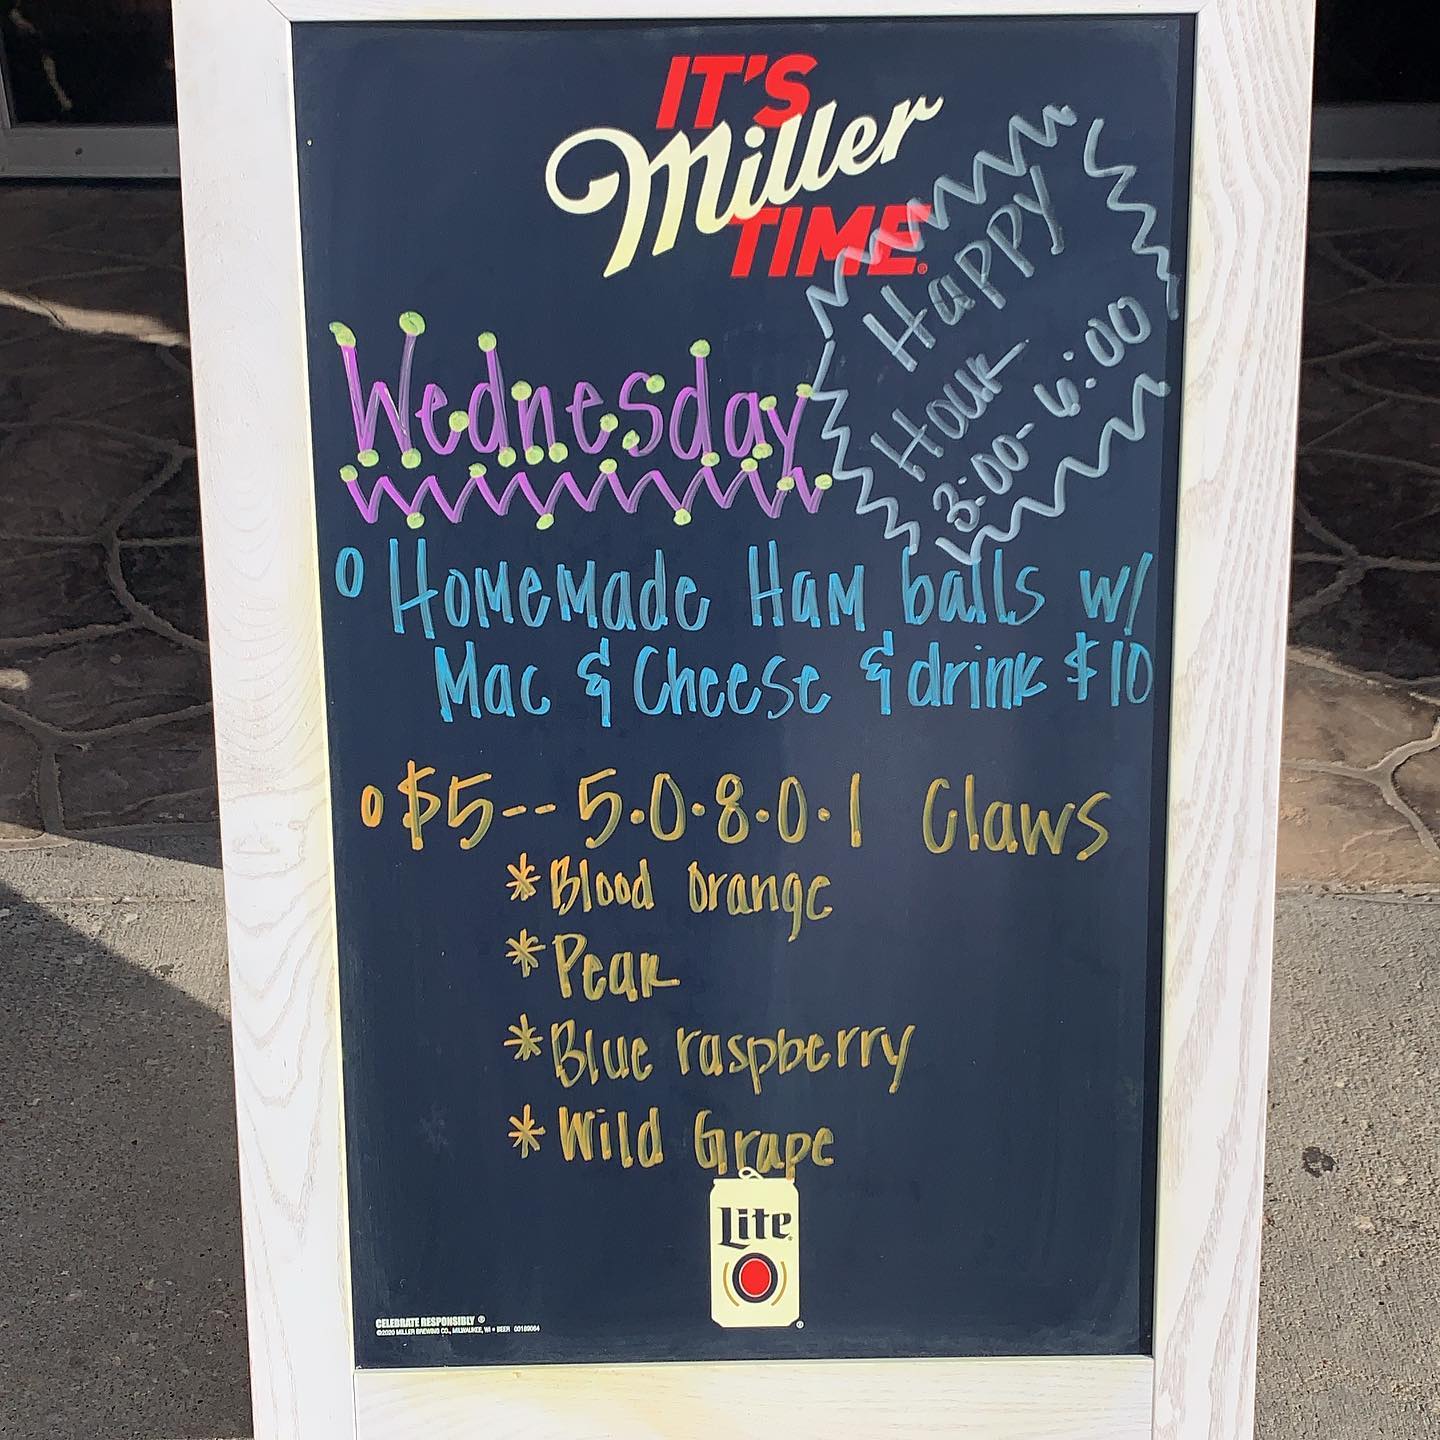 IT'S
Miller
TIME®
Happy
Hour
3:00-6:00
Wednesday
o Homemade Ham balls w/
Mac & Cheese & drink $10
o $5-- 5.0.8.0.1 Claws
*Blood orange
*Pear
*Blue raspberry
*Wild Grape
Lite®
CELEBRATE RESPONSIBLY ®
©2020 MILLER BREWING CO., MILWAUKEE, WI • BEER